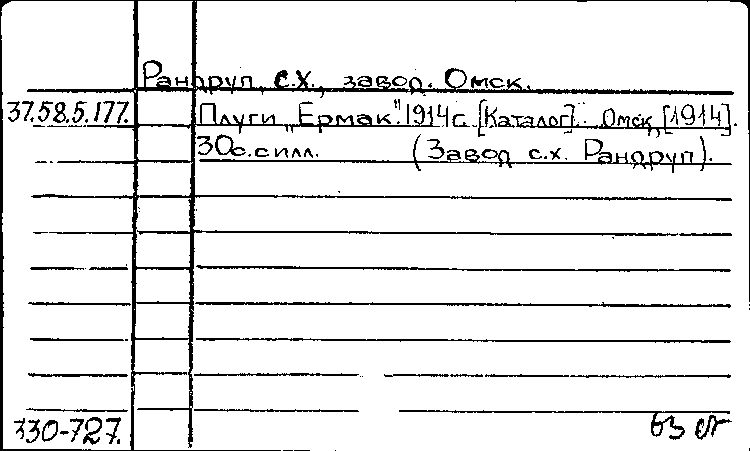 Рандруп, с.х., завод. Омск.
37.58.5.177. Плуги „Ермак". 1914 г. [Каталог]. Омск, [1914].
30 с. с илл. (Завод с.х. Рандруп).
330-727.
63